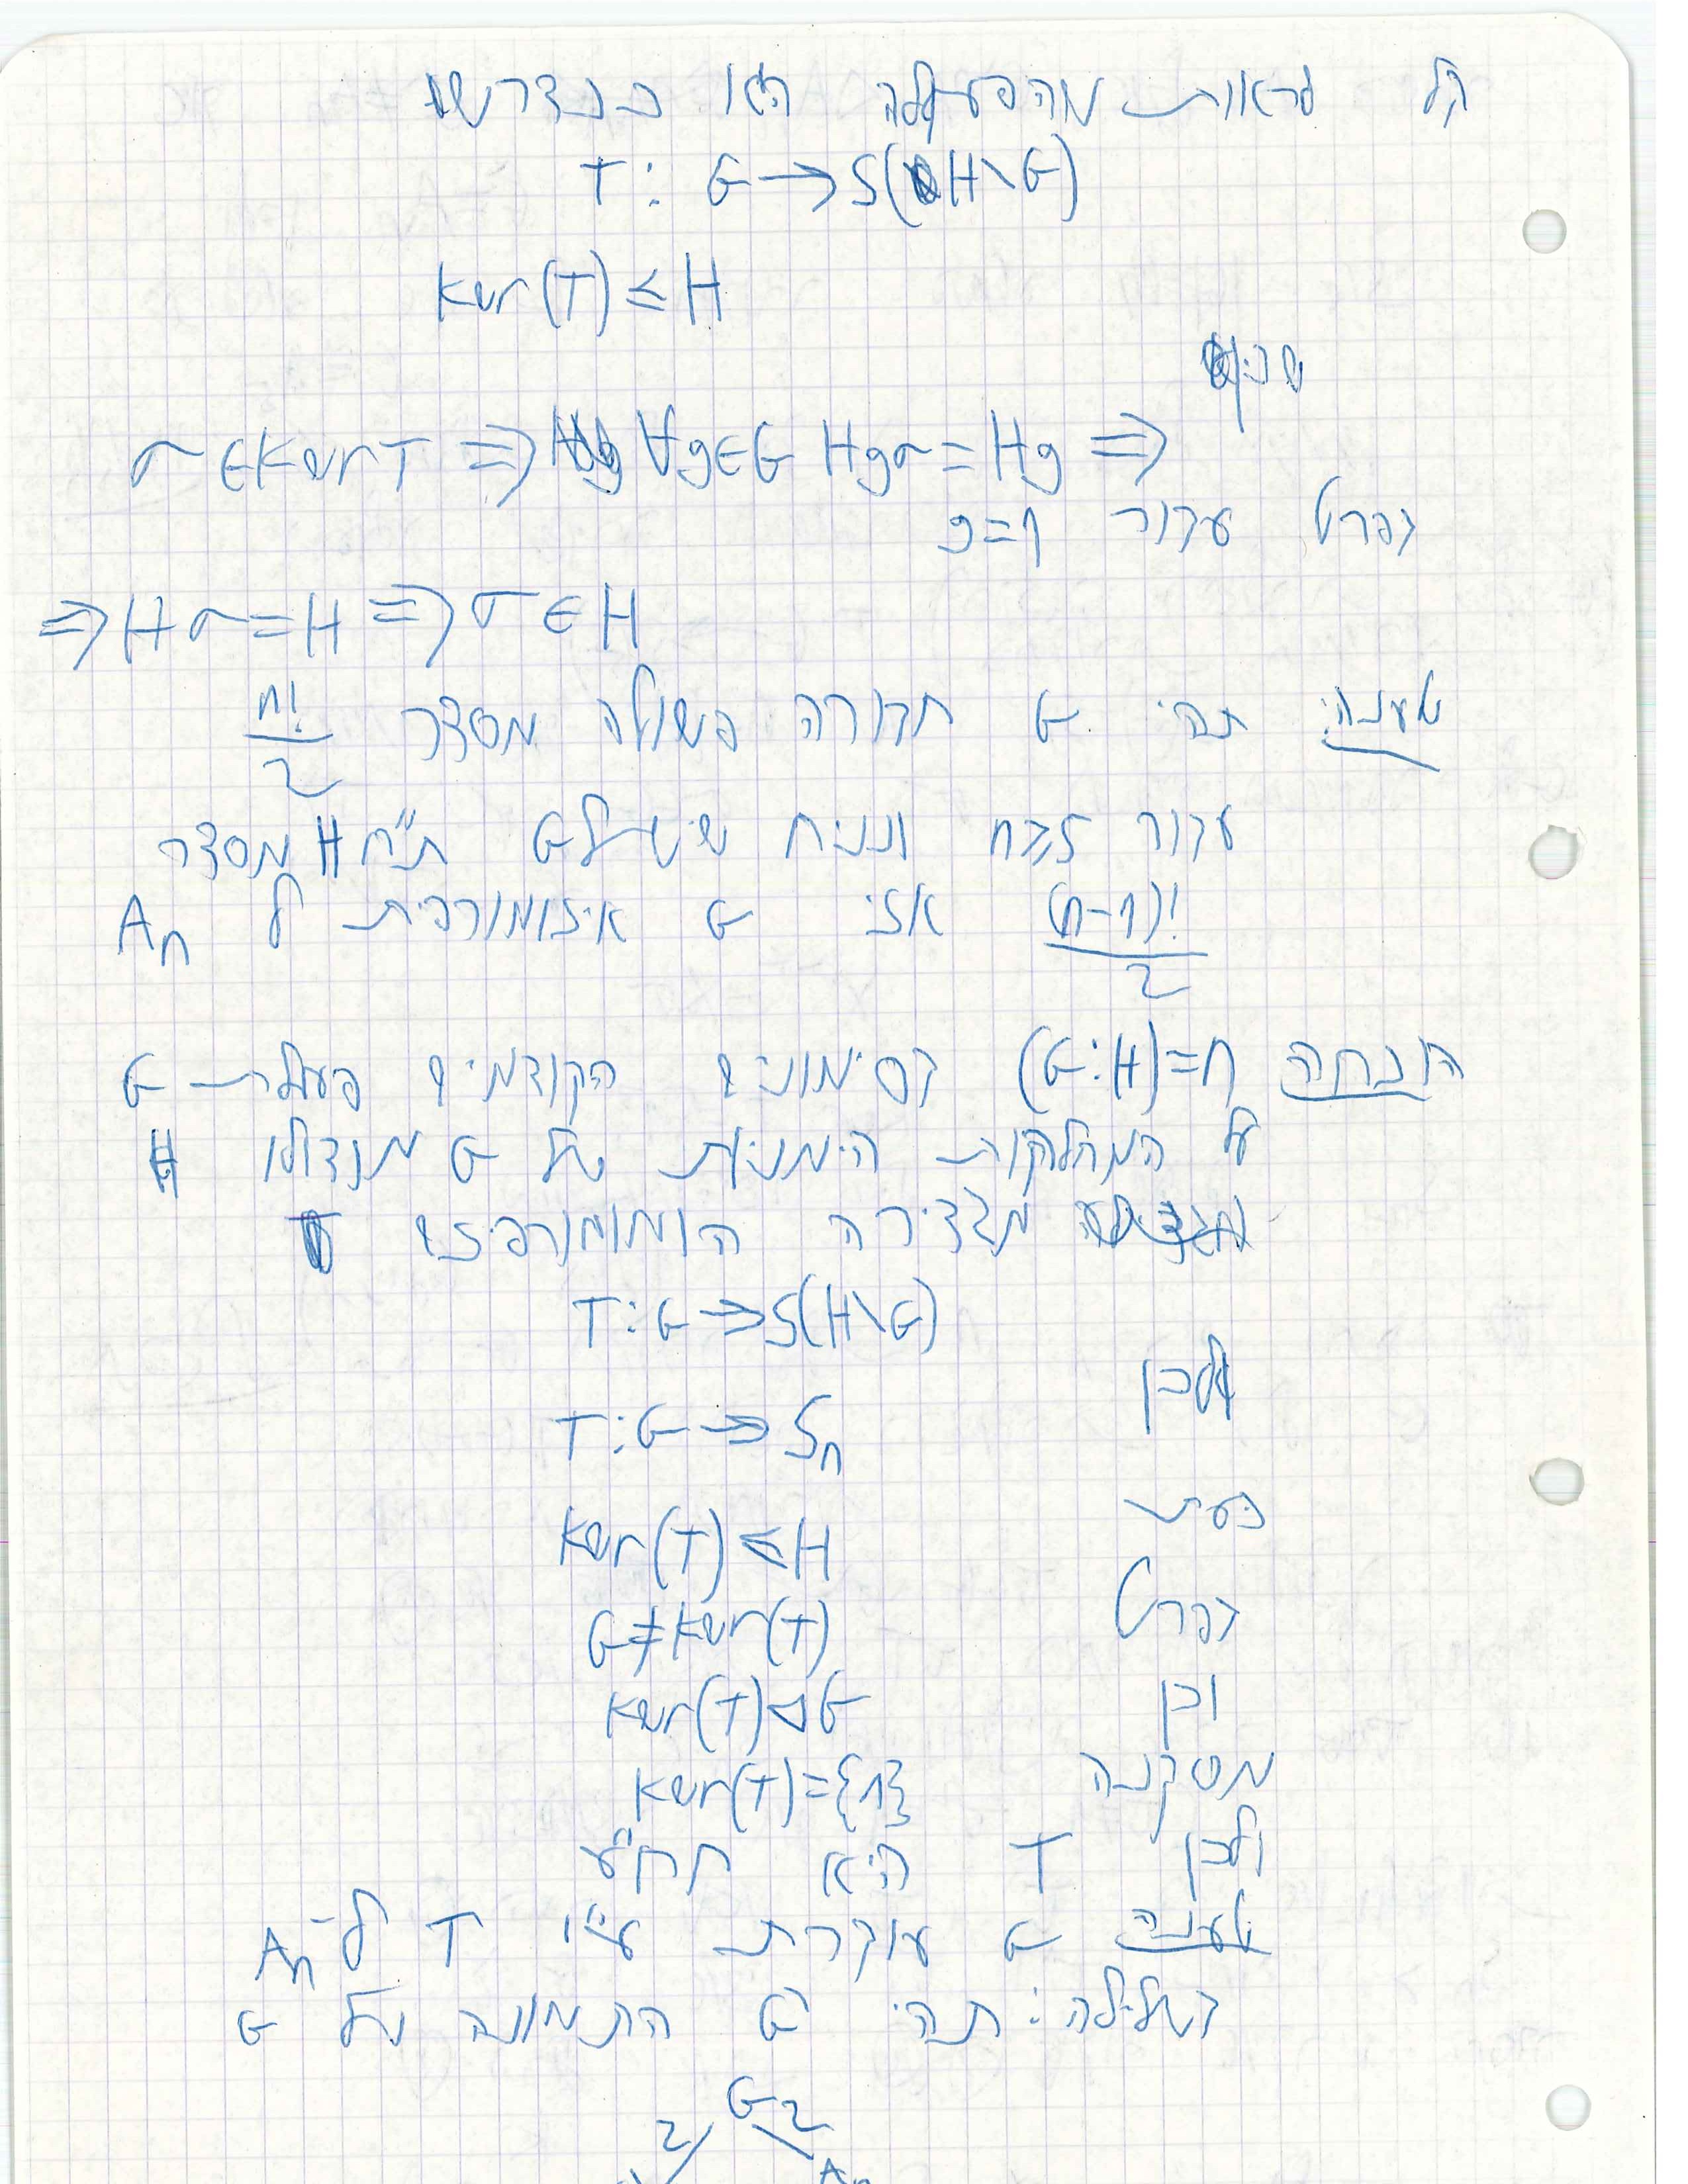 קל לראות שהפעולה הזו כנדרש
T: G → S(H\G)
ker(T) ≤ H
σ ∈ Ker T ⇒ ∀g∈G Hgσ = Hg ⇒
בפרט עבור g=1
⇒ Hσ = H ⇒ σ ∈ H
טענה: תהי G חבורה פשוטה מסדר n!/2
עבור n≥5 ונניח שיש ל G ת"ח H מסדר
(n-1)!/2 אזי G איזומורפית ל An
הוכחה (G:H)=n בסימונים הקודמים פעולת G
על המחלקות הימניות של G מודולו H
מגדירה הומומורפיזם
T: G → S(H\G)
ולכן T: G → Sn
כעת Ker(T) ≤ H
בפרט G ≠ Ker(T)
וכן Ker(T) ⊲ G
מסקנה Ker(T) = {1}
ולכן T היא חח"ע
טענה G עוברת ע"י T ל-An
בשלילה: תהי G התמונה של G
G
2 2
An